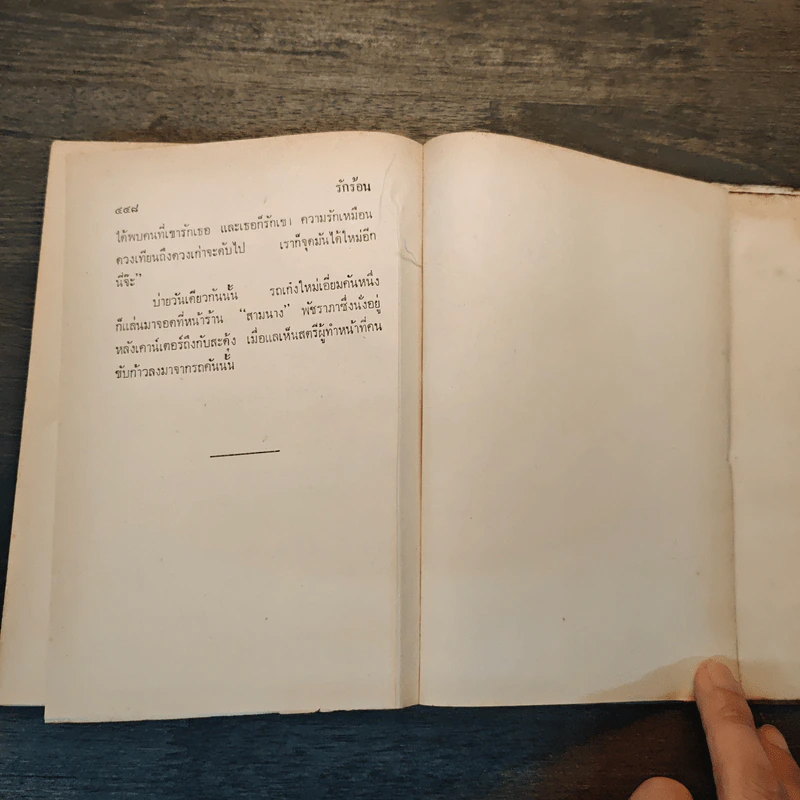 รักร้อน
๔๔๘
ได้พบคนที่เขารักเธอ และเธอก็รักเขา ความรักเหมือน
ดวงเทียนถึงดวงเก่าจะดับไป เราก็จุดมันได้ใหม่อีก
นี่จ๊ะ"
บ่ายวันเดียวกันนั้น รถเก๋งใหม่เอี่ยมคันหนึ่ง
ก็แล่นมาจอดที่หน้าร้าน "สามนาง" พัชราภาซึ่งนั่งอยู่
หลังเคาน์เตอร์ถึงกับสะดุ้ง เมื่อแลเห็นสตรีผู้ทำหน้าที่คน
ขับก้าวลงมาจากรถคันนั้น